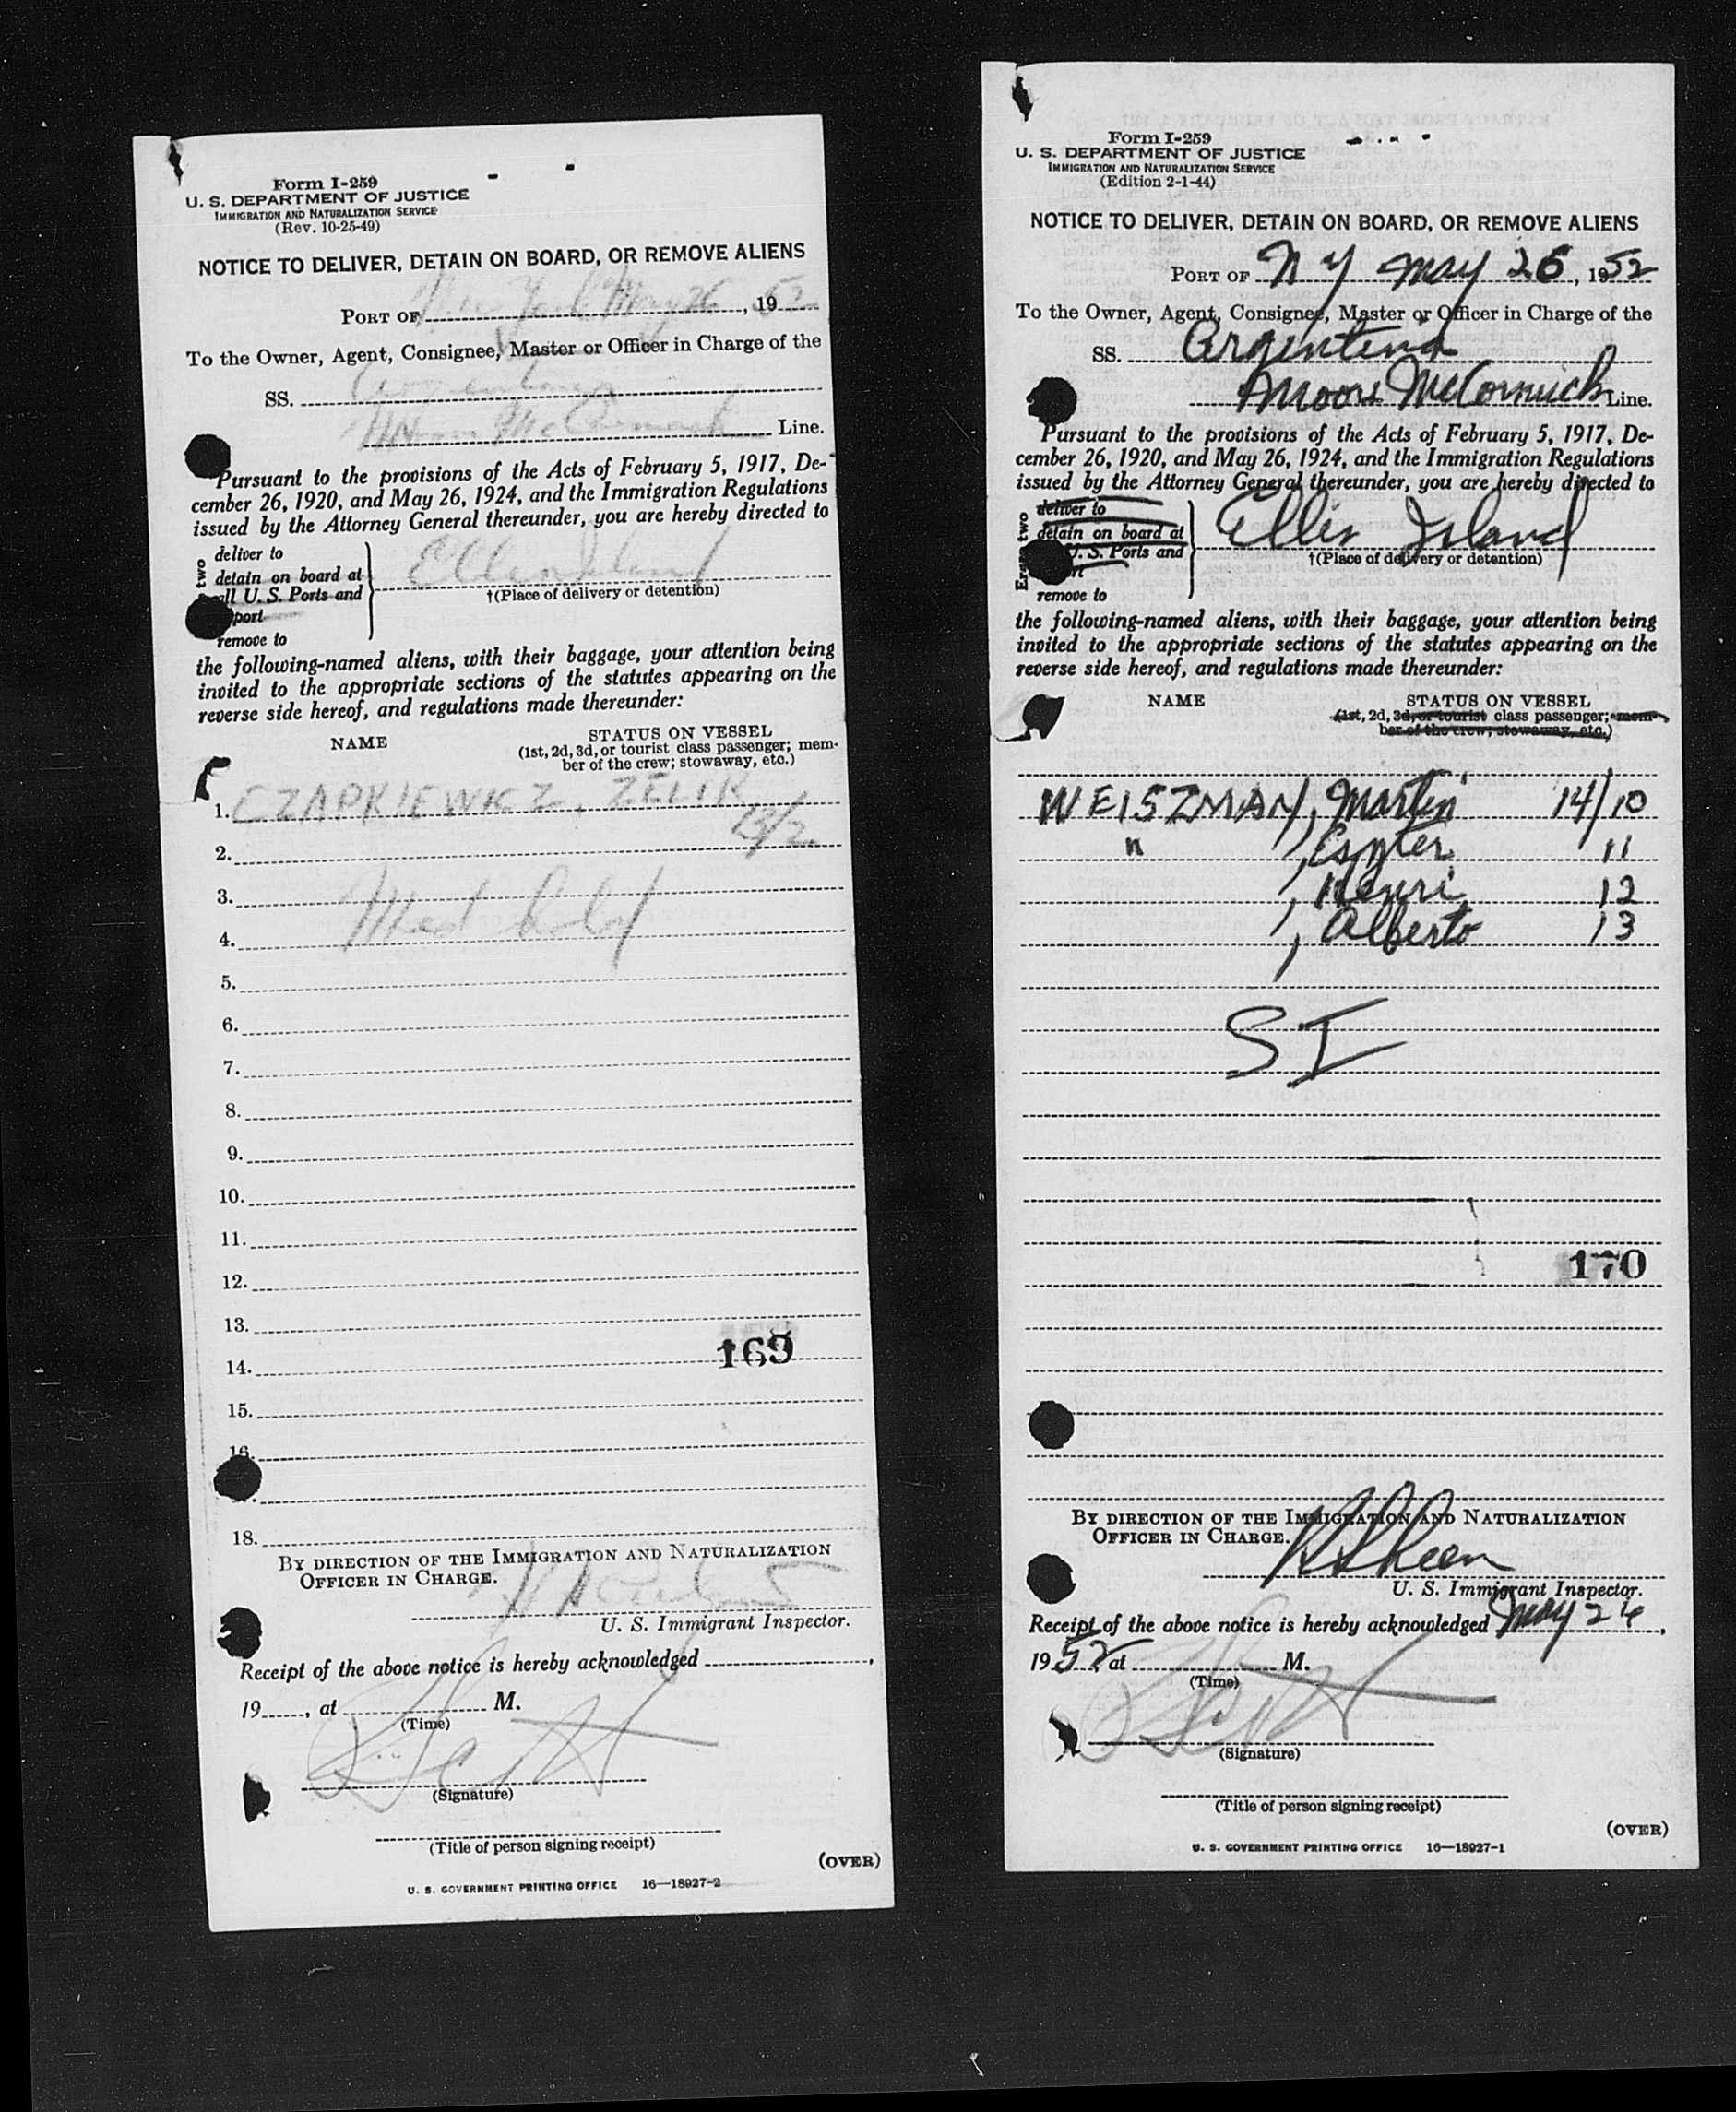 Form I-259
U. S. DEPARTMENT OF JUSTICE
IMMIGRATION AND NATURALIZATION SERVICE
(Rev. 10-25-49)
NOTICE TO DELIVER, DETAIN ON BOARD, OR REMOVE ALIENS
PORT OF New York May 26, 1952
To the Owner, Agent, Consignee, Master or Officer in Charge of the
SS. Argentina
Moore McCormack Line.
Pursuant to the provisions of the Acts of February 5, 1917, De-
cember 26, 1920, and May 26, 1924, and the Immigration Regulations
issued by the Attorney General thereunder, you are hereby directed to
two
deliver to
detain on board at
all U. S. Ports and
port
remove to
Ellis Island
†(Place of delivery or detention)
the following-named aliens, with their baggage, your attention being
invited to the appropriate sections of the statutes appearing on the
reverse side hereof, and regulations made thereunder:
NAME
STATUS ON VESSEL
(1st, 2d, 3d, or tourist class passenger; mem-
ber of the crew; stowaway, etc.)
1. CZAPKIEWICZ, ZELIK
2.
3. Med hold
4.
5.
6.
7.
8.
9.
10.
11.
12.
13.
169
14.
15.
16.
18.
BY DIRECTION OF THE IMMIGRATION AND NATURALIZATION
OFFICER IN CHARGE.
U. S. Immigrant Inspector.
Receipt of the above notice is hereby acknowledged ,
19 , at M.
(Time)
(Signature)
(Title of person signing receipt)
(OVER)
U. S. GOVERNMENT PRINTING OFFICE 16—18927-2
Form I-259
U. S. DEPARTMENT OF JUSTICE
IMMIGRATION AND NATURALIZATION SERVICE
(Edition 2-1-44)
NOTICE TO DELIVER, DETAIN ON BOARD, OR REMOVE ALIENS
PORT OF N Y May 26, 1952
To the Owner, Agent, Consignee, Master or Officer in Charge of the
SS. Argentina
Moore McCormick Line.
Pursuant to the provisions of the Acts of February 5, 1917, De-
cember 26, 1920, and May 26, 1924, and the Immigration Regulations
issued by the Attorney General thereunder, you are hereby directed to
two
deliver to
detain on board at
U. S. Ports and
remove to
Ellis Island
†(Place of delivery or detention)
the following-named aliens, with their baggage, your attention being
invited to the appropriate sections of the statutes appearing on the
reverse side hereof, and regulations made thereunder:
NAME
STATUS ON VESSEL
(1st, 2d, 3d, or tourist class passenger; mem-
ber of the crew; stowaway, etc.)
WEISZMAN, Martin 14/10
" , Eszter 11
, Henri 12
, Alberto 13
SI
170
BY DIRECTION OF THE IMMIGRATION AND NATURALIZATION
OFFICER IN CHARGE.
U. S. Immigrant Inspector.
Receipt of the above notice is hereby acknowledged May 26,
1952 at M.
(Time)
(Signature)
(Title of person signing receipt)
(OVER)
U. S. GOVERNMENT PRINTING OFFICE 16—18927-1